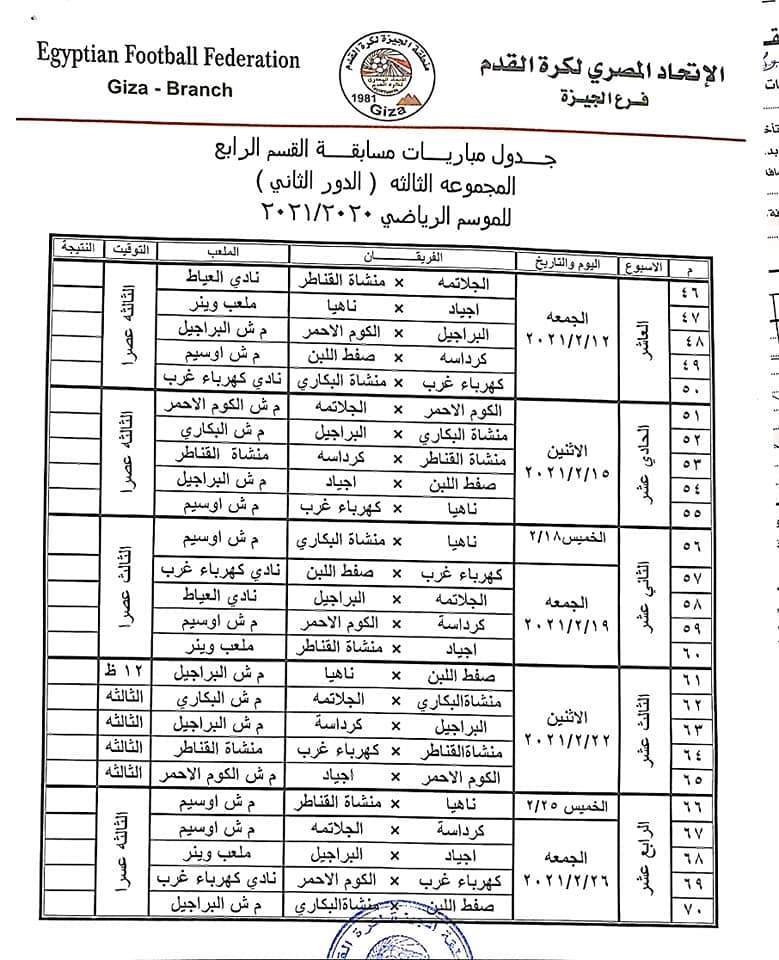 Egyptian Football Federation
Giza - Branch
منطقة الجيزة لكرة القدم
1981
Giza
الإتحاد المصري لكرة القدم
فرع الجيزة
جدول مباريات مسابقة القسم الرابع
المجموعه الثالثه ( الدور الثاني )
للموسم الرياضي ٢٠٢١/٢٠٢٠
م الاسبوع اليوم والتاريخ الفريقان الملعب التوقيت النتيجة
العاشر الجمعه ٢٠٢١/٢/١٢ الثالثه عصرا
٤٦ الجلاتمه × منشاة القناطر نادي العياط
٤٧ اجياد × ناهيا ملعب وينر
٤٨ البراجيل × الكوم الاحمر م ش البراجيل
٤٩ كرداسه × صفط اللبن م ش اوسيم
٥٠ كهرباء غرب × منشاة البكاري نادي كهرباء غرب
الحادي عشر الاثنين ٢٠٢١/٢/١٥ الثالثه عصرا
٥١ الكوم الاحمر × الجلاتمه م ش الكوم الاحمر
٥٢ منشاة البكاري × البراجيل م ش البكاري
٥٣ منشاة القناطر × كرداسه منشاة القناطر
٥٤ صفط اللبن × اجياد م ش البراجيل
٥٥ ناهيا × كهرباء غرب م ش اوسيم
الثاني عشر الثالث عصرا
٥٦ الخميس٢/١٨ ناهيا × منشاة البكاري م ش اوسيم
الجمعه ٢٠٢١/٢/١٩
٥٧ كهرباء غرب × صفط اللبن نادي كهرباء غرب
٥٨ الجلاتمه × البراجيل نادي العياط
٥٩ كرداسة × الكوم الاحمر م ش اوسيم
٦٠ اجياد × منشاة القناطر ملعب وينر
الثالث عشر الاثنين ٢٠٢١/٢/٢٢
٦١ صفط اللبن × ناهيا م ش البراجيل ١٢ ظ
٦٢ منشاةالبكاري × الجلاتمه م ش البكاري الثالثه
٦٣ البراجيل × كرداسة م ش البراجيل الثالثه
٦٤ منشاةالقناطر × كهرباء غرب منشاة القناطر الثالثه
٦٥ الكوم الاحمر × اجياد م ش الكوم الاحمر الثالثه
الرابع عشر الثالثه عصرا
٦٦ الخميس ٢/٢٥ ناهيا × منشاة القناطر م ش اوسيم
الجمعه ٢٠٢١/٢/٢٦
٦٧ كرداسة × الجلاتمه م ش اوسيم
٦٨ اجياد × البراجيل ملعب وينر
٦٩ كهرباء غرب × الكوم الاحمر نادي كهرباء غرب
٧٠ صفط اللبن × منشاةالبكاري م ش البراجيل